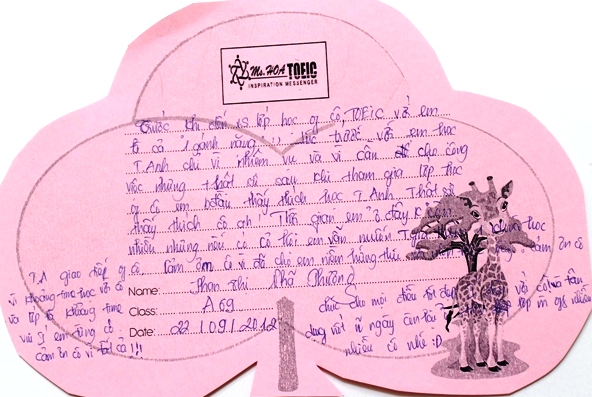 Ms. HOA TOEIC
INSPIRATION MESSENGER
Trước khi đến vs lớp học of cô, TOEIC với em
là cả 1 gánh nặng trước với em học
T.Anh chỉ vì nhiệm vụ và vì cần để cho công
việc nhưng thật sự sau khi tham gia lớp học
of cô em bắt đầu thấy thích học T.Anh. Thật sự
thấy thích cô ah. Thời gian em ở đây k
nhiều nhưng nếu có cơ hội em vẫn muốn học
T.A giao tiếp of cô. Cảm ơn cô vì đã cho em niềm hứng thú Cảm ơn cô
vì khoảng time học với cô
và lớp là khoảng time
vui vẻ em từng có
cảm ơn cô vì tất cả !!!
Name: Phan Thị Nhã Phương
Class: A69
Date: 22/09/2012
chúc cho mọi điều tốt đẹp với cô
nhiều cô nhé :D